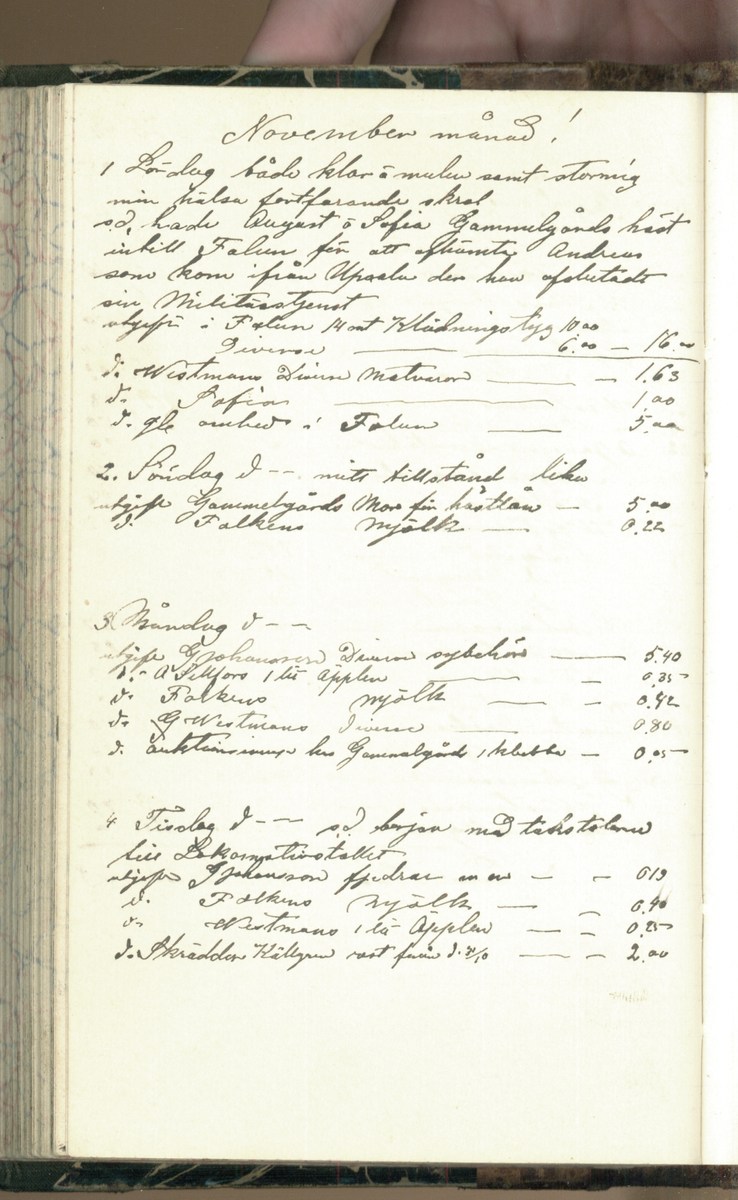 November månad!
1 Lördag både klar å mulen samt stormig
min hälsa fortfarande skral
s.d. hade August å Sofia Gammelgårds häst
intill Falun för att afhämta Andreas
som kom ifrån Upsala der han afslutadt
sin Militärstjenst
utgift i Falun 14 ont Klädningstyg 10.00
Diverse 6.00 — 16.00
d. Westmans Diverse Matvaror — 1.63
d. Sofia — 1,00
d. i Falun — 5,00
2. Söndag d - - mitt tillstånd lika
utgift Gammelgårds Mor för hästlån — 5.00
d. Falkens Mjölk — 0.22
3 Måndag d - -
utgift G Johansson Diverse sybehör — 5.40
d. A Sillfors 1 lit Äpplen — 0.35
d. Falkens Mjölk — 0.42
d. G Westmans Diverse — 0.80
d. hos Gammalgård 1 klubba — 0.05
4 Tisdag d - - s.d. började med takstolarne
till Lokomotivstallet
utgift G Johansson fjedrar — 0 19
d. Falkens Mjölk — 0.40
d. Westmans 1 lit Äpplen — 0.25
d. Skräddar Källgren rast från d. 31/10 — 2.00